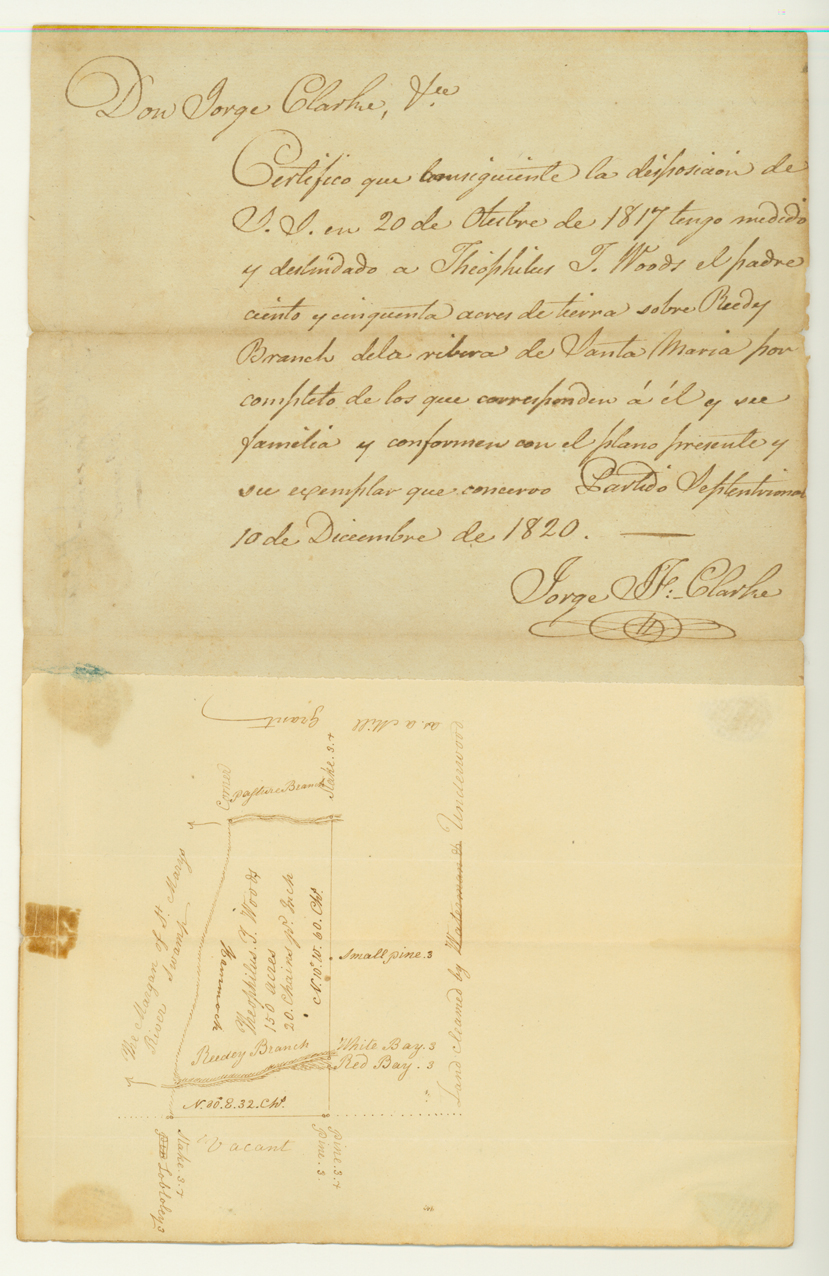 Don Jorge Clarke, &ce
Certifico que consiguiente la disposicion de
S. S. en 20 de Otubre de 1817 tengo medido
y deslindado a Theophilus T. Woods el padre
ciento y cinquenta acres de tierra sobre Reedy
Branch dela ribera de Santa Maria por
completo de los que corresponden á él y su
familia y conformen con el plano presente y
su exemplar que concervo Partido Septentrional
10 de Diciembre de 1820.
Jorge J. F. Clarke
Land claimed by Underwood
as a Mill
grant
Corner
Pasture Branch
Stake. 3. +
The Margan of St. Marys
River Swamp
Hammock
Theophilus. T. Woods
150 acres
20. Chains pr. Inch
N. 10. W. 60. Chs.
Small pine. 3
Reedey Branch
White Bay. 3
Red Bay. 3
N. 80. E. 32. Chs.
Vacant
Stake. 3. +
Loblolley 3
Pine. 3. +
Pine. 3.